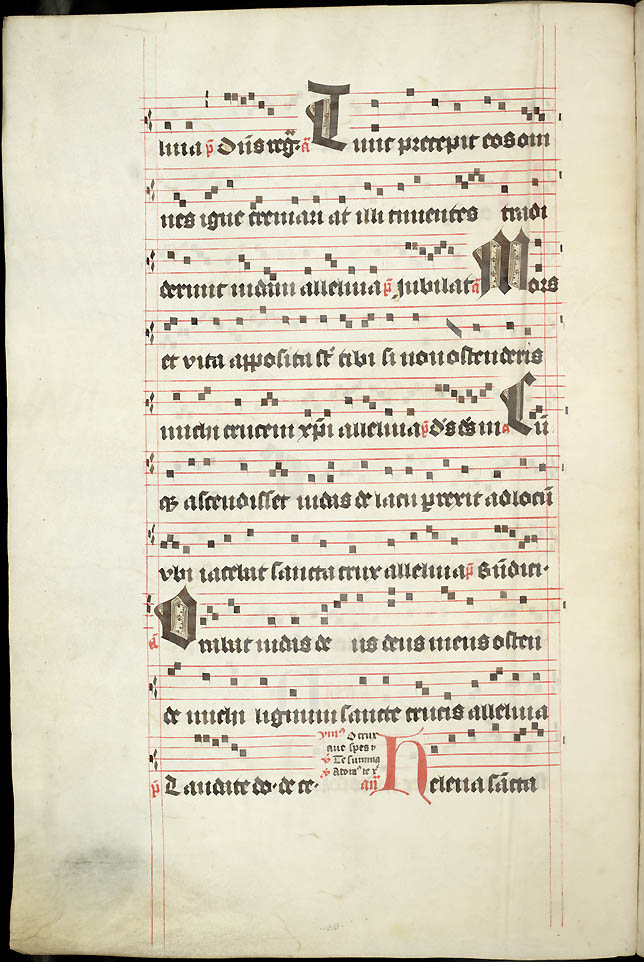 luia p̄ Dn̄s reḡ. a̅ Tunc precepit eos om
nes igne cremari at illi timentes tradi
derunt iudam alleluia p̄ Jubilat a̅ Mors
et vita apposita st̄ tibi si non ostenderis
michi crucem xp̄i alleluia p̄ d's d's m a Cū
q3 ascendisset iudas de lacu perrexit ad locū
vbi iacebat sancta crux alleluia p̄ Bn̄dici.
a̅ Orabat iudas deus deus meus osten
de michi lignum sancte crucis alleluia
p̄ Laudate do. de ce. ymn9 O crux
aue spes v̄
Te summa
an̄ Helena sancta